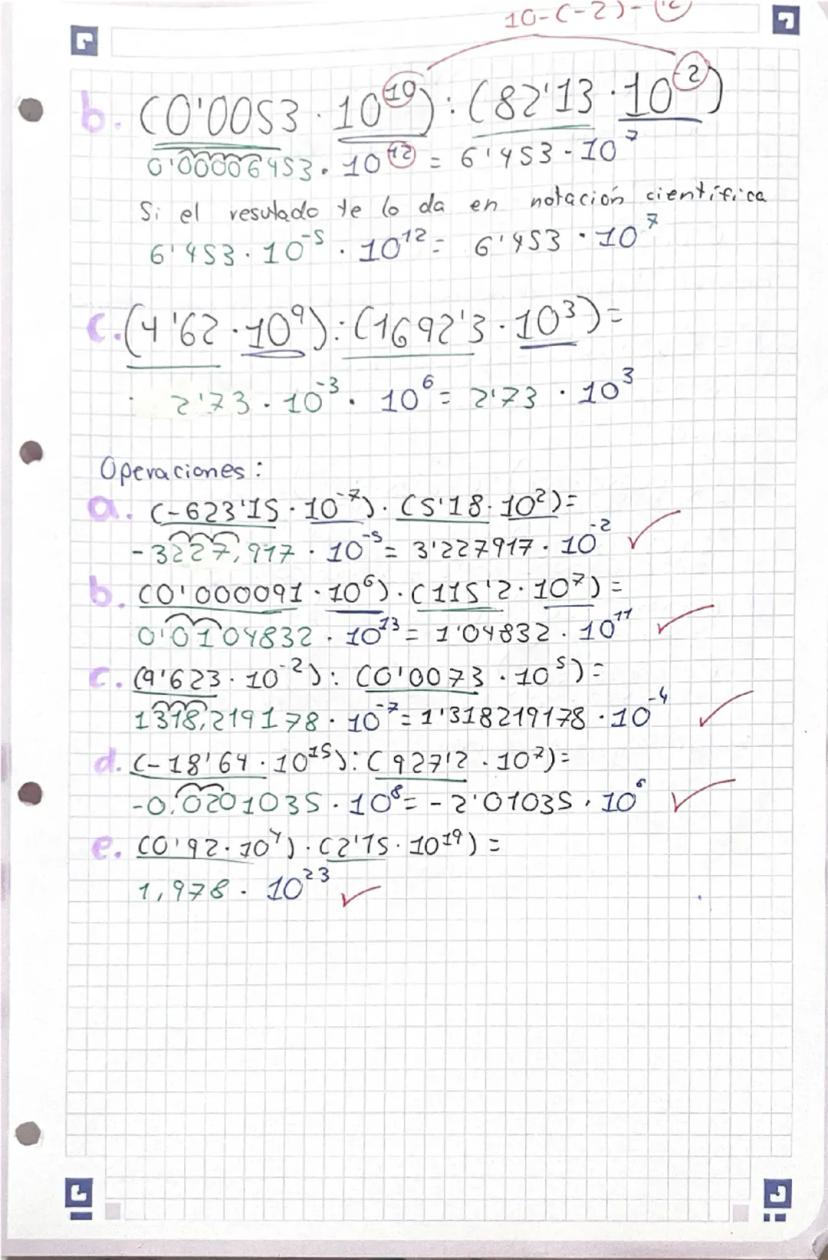 10-(-2)-12
b. (0'0053 · 10^10) : (82'13 · 10^-2)
0'00006453 · 10^12 = 6'453 · 10^7
Si el resulado te lo da en notación científica
6'453 · 10^-5 · 10^12 = 6'453 · 10^7
c. (4'62 · 10^9) : (1692'3 · 10^3) =
2'73 · 10^-3 · 10^6 = 2'73 · 10^3
Operaciones:
a. (-623'15 · 10^-7) · (5'18 · 10^2) =
-3227,917 · 10^-5 = 3'227917 · 10^-2
b. (0'000091 · 10^6) · (115'2 · 10^7) =
0'0104832 · 10^13 = 1'04832 · 10^11
c. (9'623 · 10^-2) : (0'0073 · 10^5) =
1318,219178 · 10^-7 = 1'318219178 · 10^-4
d. (-18'64 · 10^15) : (927'2 · 10^7) =
-0,0201035 · 10^8 = -2'01035 · 10^6
e. (0'92 · 10^4) · (2'15 · 10^19) =
1,978 · 10^23